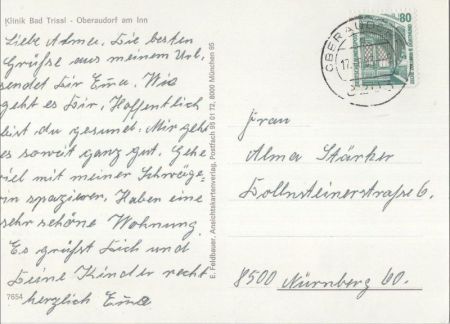 Klinik Bad Trissl - Oberaudorf am Inn
Liebe Alma. Die besten
Grüße aus meinem Url.
sendet Dir Ema. Wie
geht es Dir, Hoffentlich
bist du gesund. Mir geht
es soweit ganz gut. Gehe
viel mit meiner Schwäge-
in spazieren. Haben eine
sehr schöne Wohnung.
Es grüßt Dich und
Deine Kinder recht
herzlich Ema
7654
E. Feldbauer, Ansichtskartenverlag, Postfach 95 01 72, 8000 München 95
OBERAUD
80
Frau
Alma Stärker
Dollnsteinerstraße 6.
8500 Nürnberg 60.